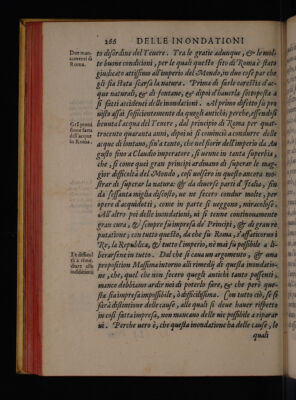 266 DELLE INONDATIONI
to disordine del Teuere. Tra le gratie adunque, & le mol-
te buone conditioni, per le quali questo sito di Roma è stato
giudicato attissimo all'imperio del Mondo, in due cose par che
gli sia stata scarsa la natura. Prima di farlo carestioso d'ac-
que naturali, & di fontane, & dipoi d'hauerla sottoposta a
si fatti accidenti delle inondationi. Al primo difetto fu pro-
uisto assai sofficientemente da quegli antichi; perche, essendosi
beuuta l'acqua del Teuere, dal principio di Roma per quat-
trocento quaranta anni, dipoi si cominciò a condurre delle
acque di fontane, fin'a tanto, che nel fiorir dell'imperio da Au
gusto fino a Claudio imperatore, si uenne in tanta superbia,
che, si come quei gran principi ardiuano di superar le mag-
gior difficoltà del Mondo, così uolsero in questo ancora mo-
strar di superar la natura: & da diuerse parti d'Italia, fin
da sessanta miglia discosto, ne ne fecero condur molte, per
opere d'acquidotti, come in parte si ueggono, miracolose.
All'altro poi delle inondationi, ui si tenne continouamente
gran cura, & sempre fu impresa da' Principi, & di grauere
putatione; con tutto questo, da che fu Roma, s'affaticorno i
Re, la Republica, & tutto l'imperio, nè mai fu possibile a li-
berarsene in tutto. Dal che si caua un argomento, & una
proposition Massima intorno alli rimedij di questa inondatio-
ne, che, quel che non fecero quegli antichi tanto possenti,
manco debbiamo ardir noi di poterlo fare, & che però que-
sta sia impresa impossibile, ò difficilissima. Con tutto ciò, se si
farà distintione delle cause, alle quali si deue hauer rispetto
in così fatta impresa, non mancano delle uie possibile a riparar
ui. Perche uero è, che questa inondatione ha delle cause, le
quali
Due man-
camenti di
Roma.
Roma.
Et difficul
tà a rime-
diare alle
inondationi